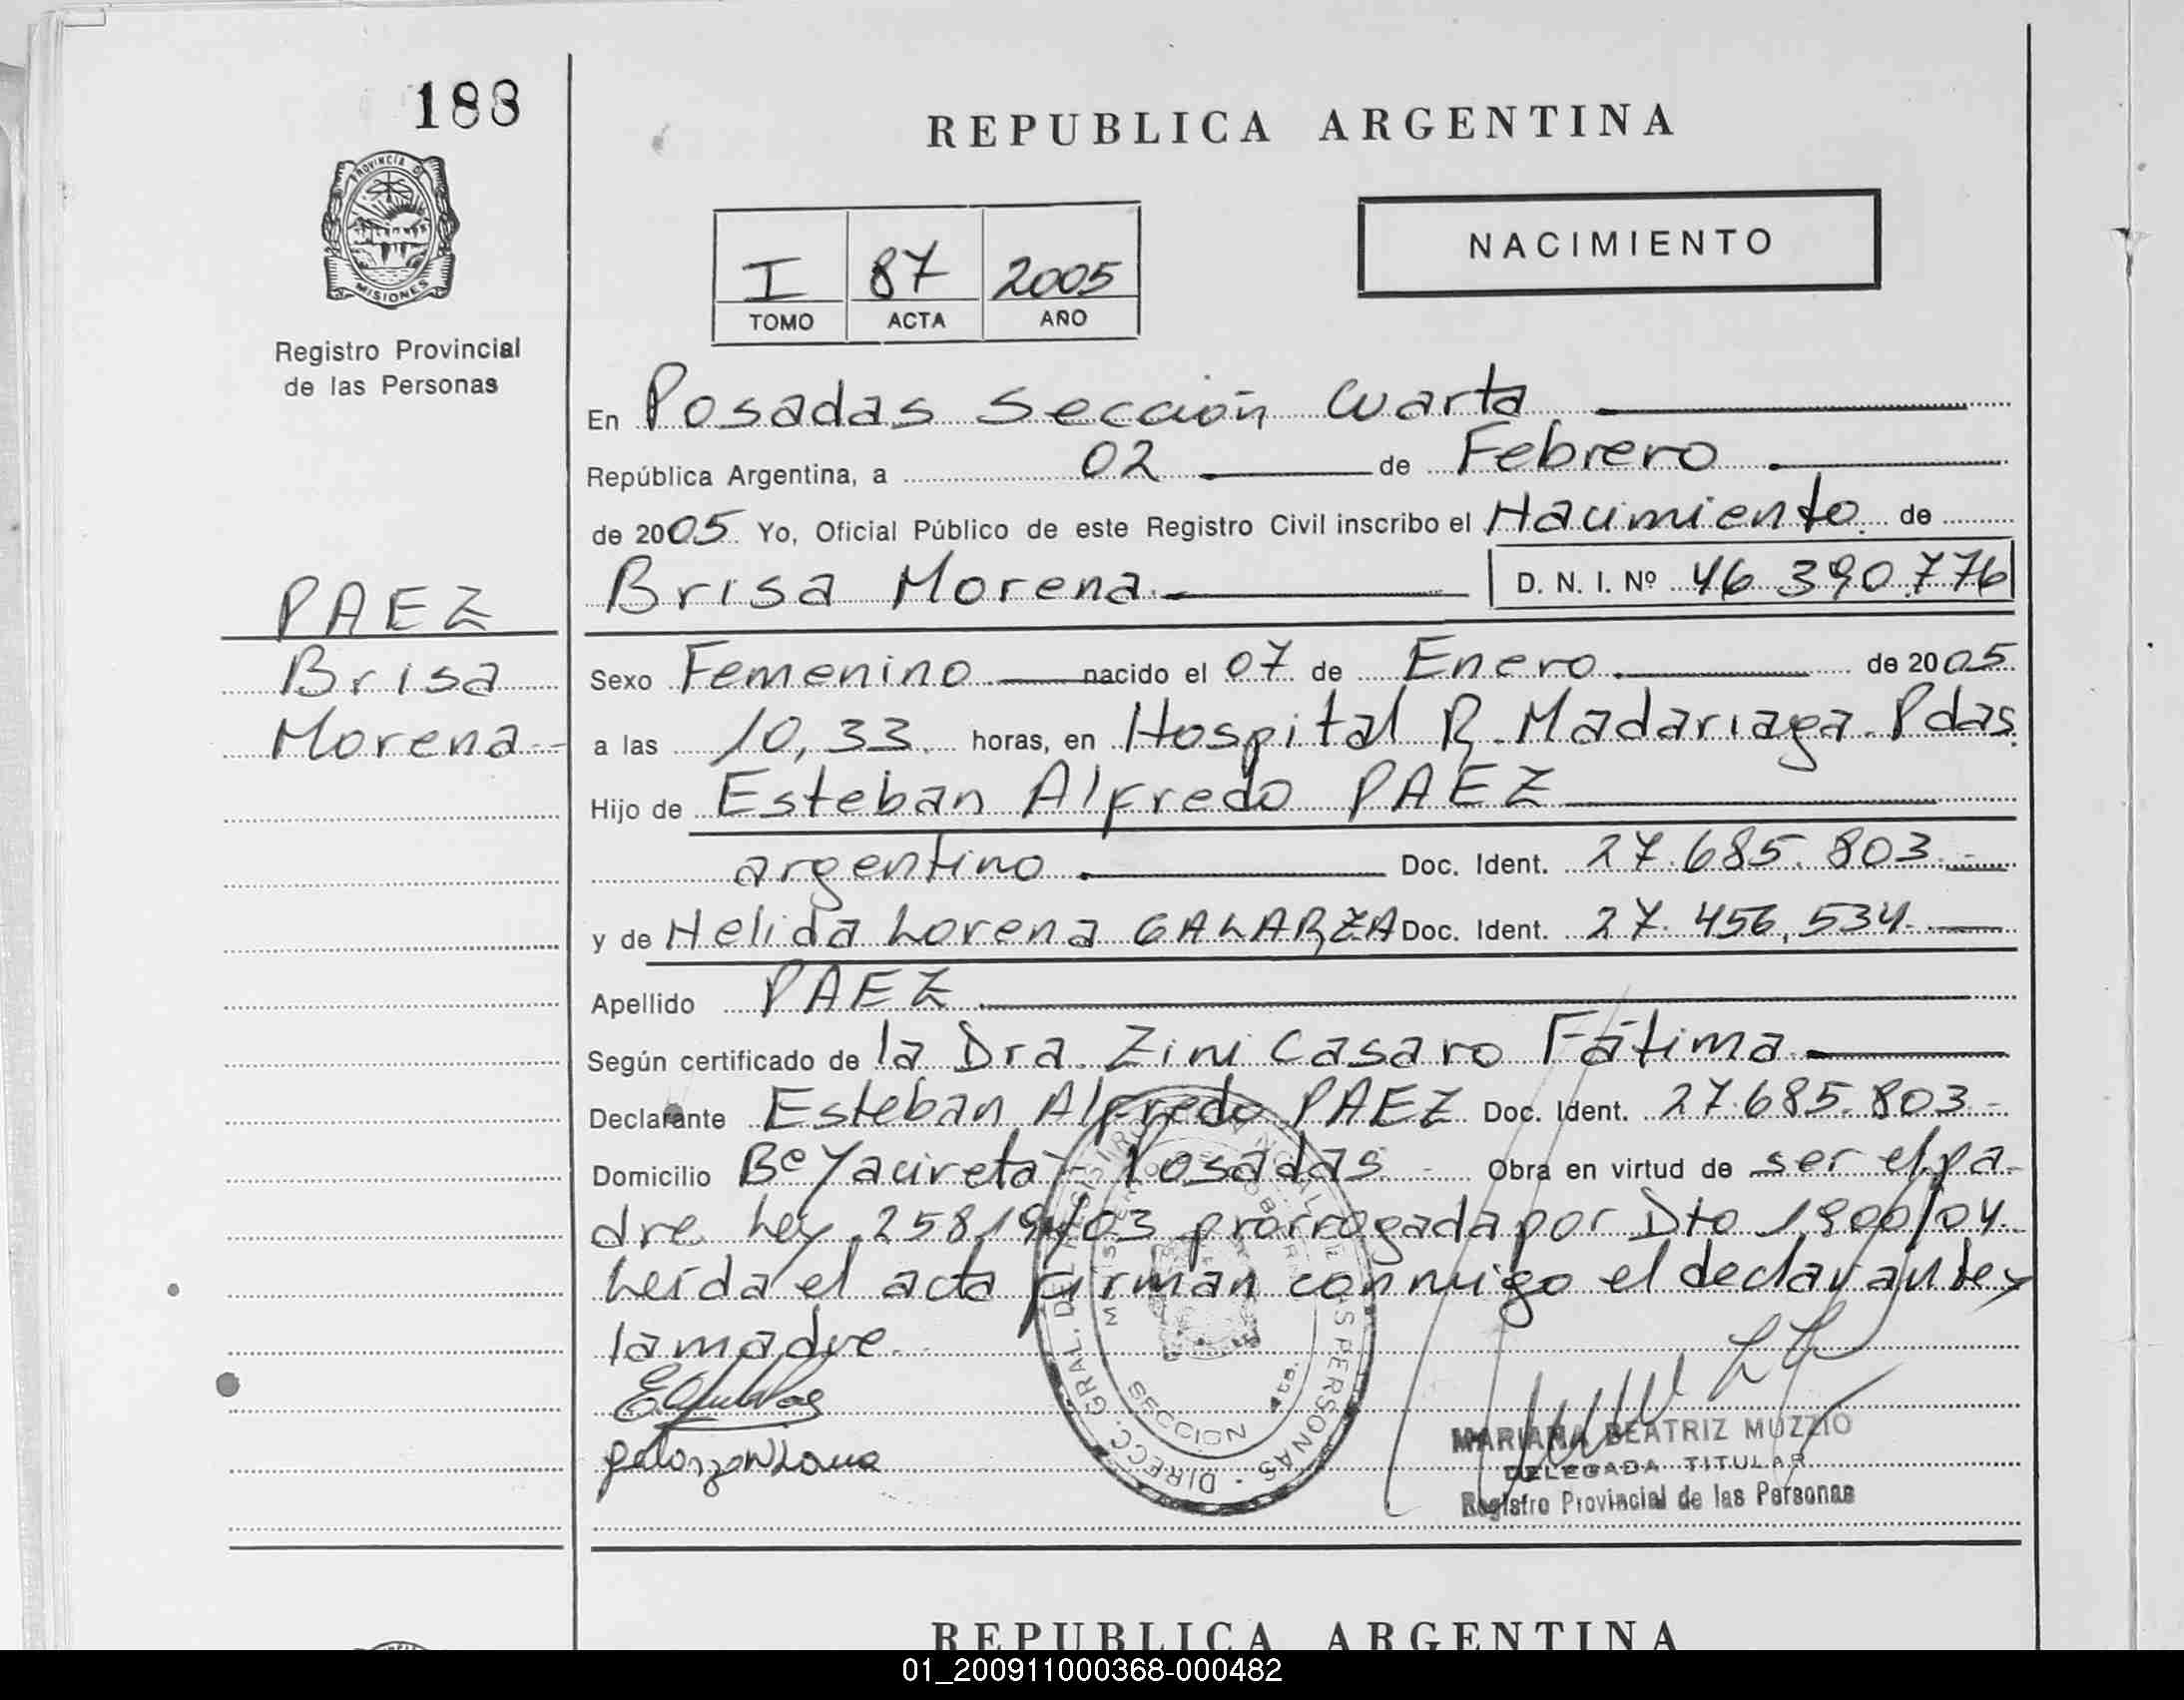 188
REPUBLICA ARGENTINA
PROVINCIA DE
MISIONES
Registro Provincial
de las Personas
I 87 2005
TOMO ACTA AÑO
NACIMIENTO
En Posadas Sección Cuarta
República Argentina, a 02 de Febrero
de 2005 Yo, Oficial Público de este Registro Civil inscribo el Nacimiento de
Brisa Morena D. N. I. Nº 46 390.776
PAEZ
Brisa
Morena
Sexo Femenino nacido el 07 de Enero de 2005
a las 10,33 horas, en Hospital R. Madariaga. Pdas.
Hijo de Esteban Alfredo PAEZ
argentino Doc. Ident. 27.685.803
y de Helida Lorena GALARZA Doc. Ident. 27.456,534
Apellido PAEZ
Según certificado de la Dra. Zini Casaro Fátima
Declarante Esteban Alfredo PAEZ Doc. Ident. 27.685.803
Domicilio Bº Yacireta - Posadas Obra en virtud de ser el pa-
dre. Ley 25819/03 prorrogada por Dto 1900/04.
Leída el acta firman conmigo el declarante y
la madre.
DIRECC. GRAL. DEL REGISTRO PERSONAS
SECCION
MARIANA BEATRIZ MUZZIO
DELEGADA TITULAR
Registro Provincial de las Personas
REPUBLICA ARGENTINA
01_200911000368-000482